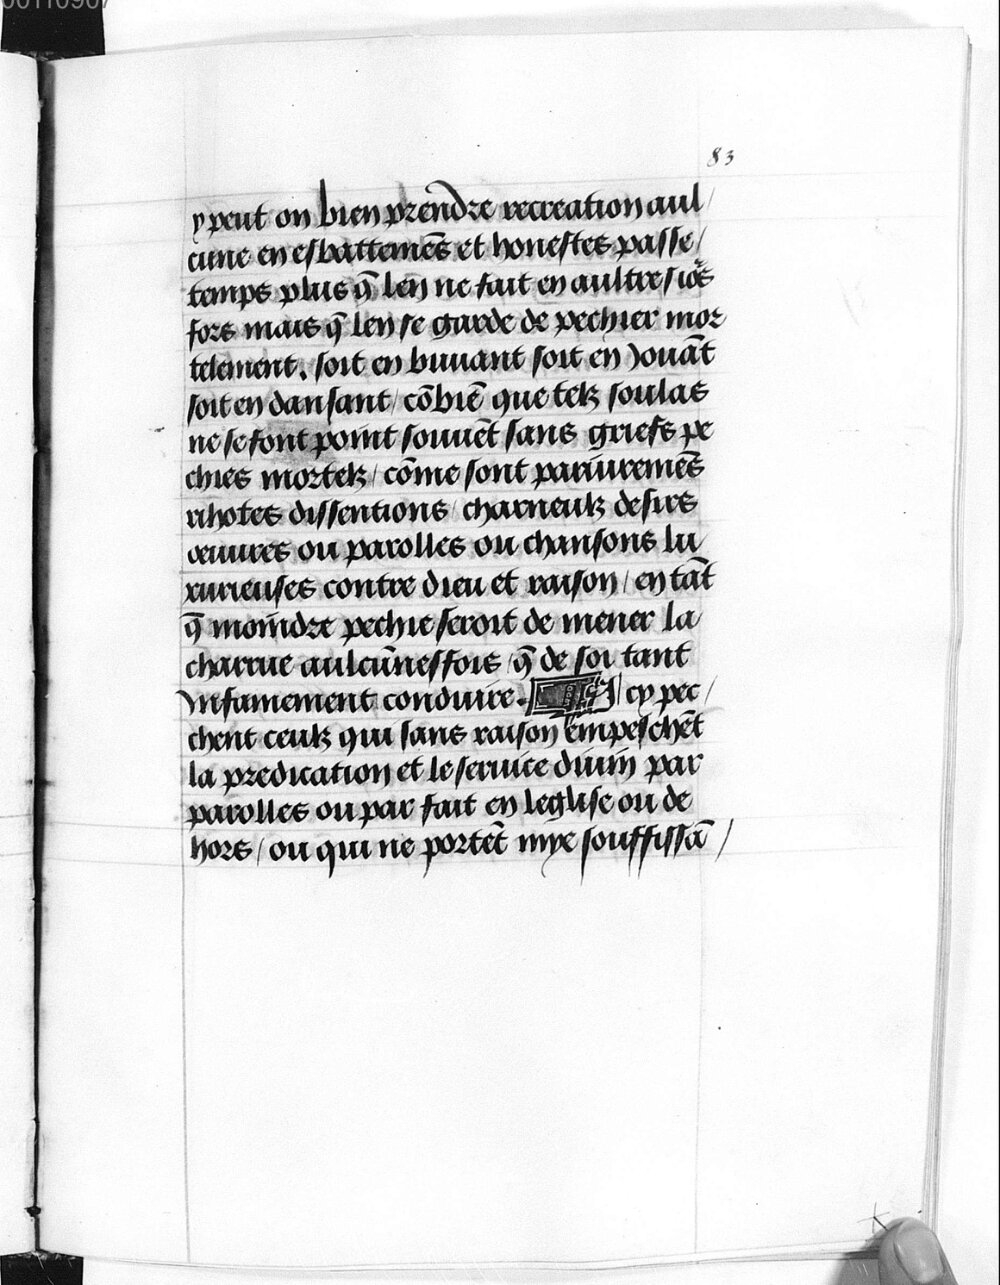 83
y peut on bien prendre recreation aul/
cune en esbattemēs et honestes passe/
temps plus q̄ len ne fait en aultres iōs
fors mais q̄ len se garde de pechier mor
telement. soit en buuant soit en Jouāt
soit en dansant / cōbiē que telz soulas
ne se font point souuēt sans griefs pe
chies mortelz / cōme sont pariuremēs
rihotes dissentions charneulz desirs
œuures ou parolles ou chansons lu
xurieuses contre dieu et raison / en tāt
q̄ moindre pechie seroit de mener la
charrue aulcūnesfois / q̄ de soi tant
Infamement conduire. Icy pec/
chent ceulz qui sans raison empeschēt
la predication et le seruice diuin par
parolles ou par fait en leglise ou de
hors / ou qui ne portēt mye souffissā/